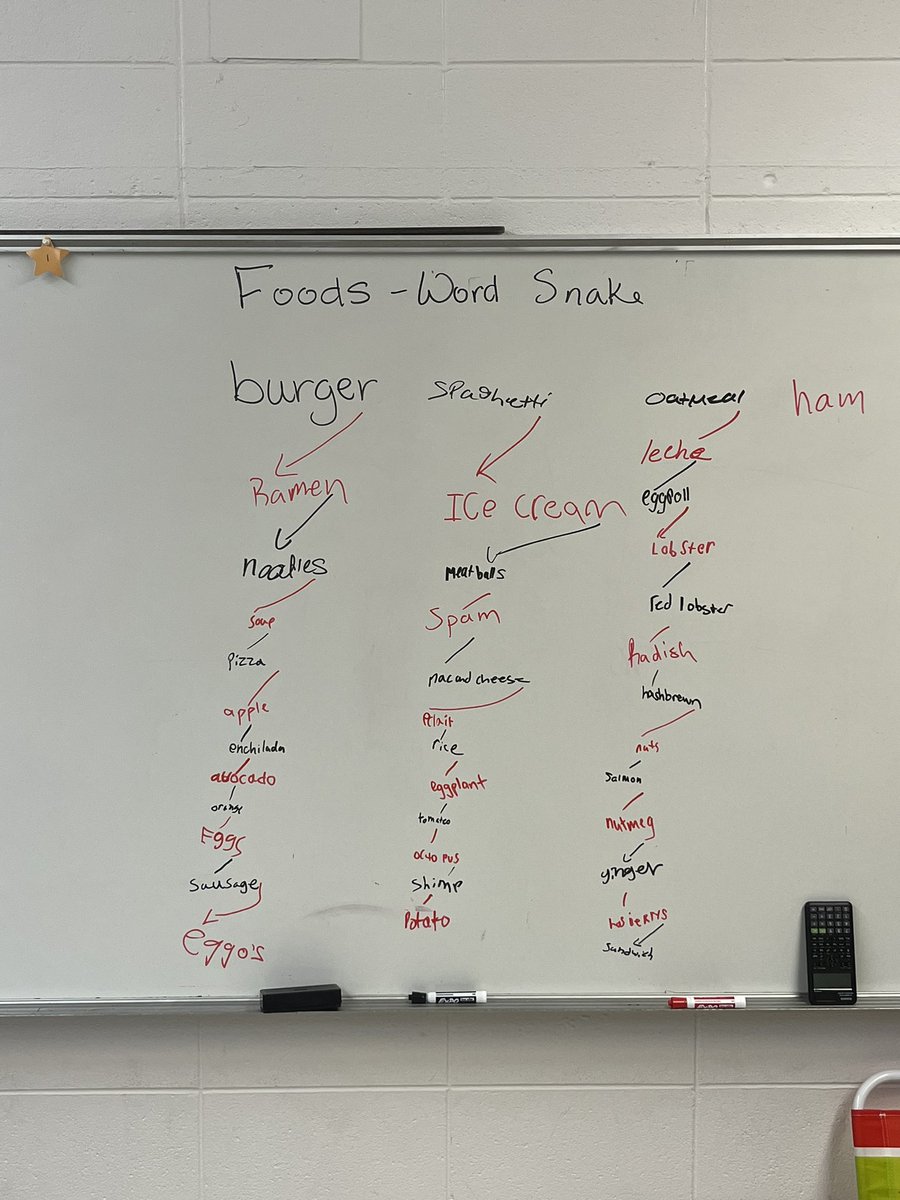 Foods - Word Snake
burger
Ramen
noodles
soup
pizza
apple
enchilada
avocado
orange
Eggs
sausage
eggo's
Spaghetti
Ice cream
Meatballs
Spam
Mac and cheese
rice
eggplant
tomatoo
octopus
shimp
Potato
oatmeal
leche
eggroll
Lobster
red lobster
Radish
hashbrown
nuts
salmon
nutmeg
ginger
sandwish
ham